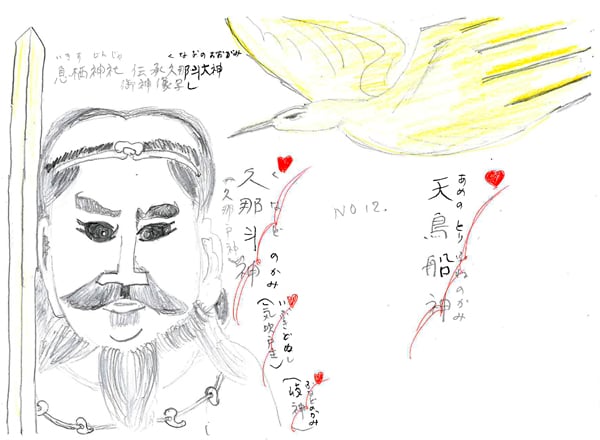 いきす じんじゃ
くなどのおおかみ
息栖神社 伝承久那斗大神
御神像写し
久那斗神
くなどのかみ
(久那戸神)
いぶきどぬし
(気吹戸主)
ふなどのかみ
(岐神)
NO 12.
天鳥船神
あめのとりふねのかみ